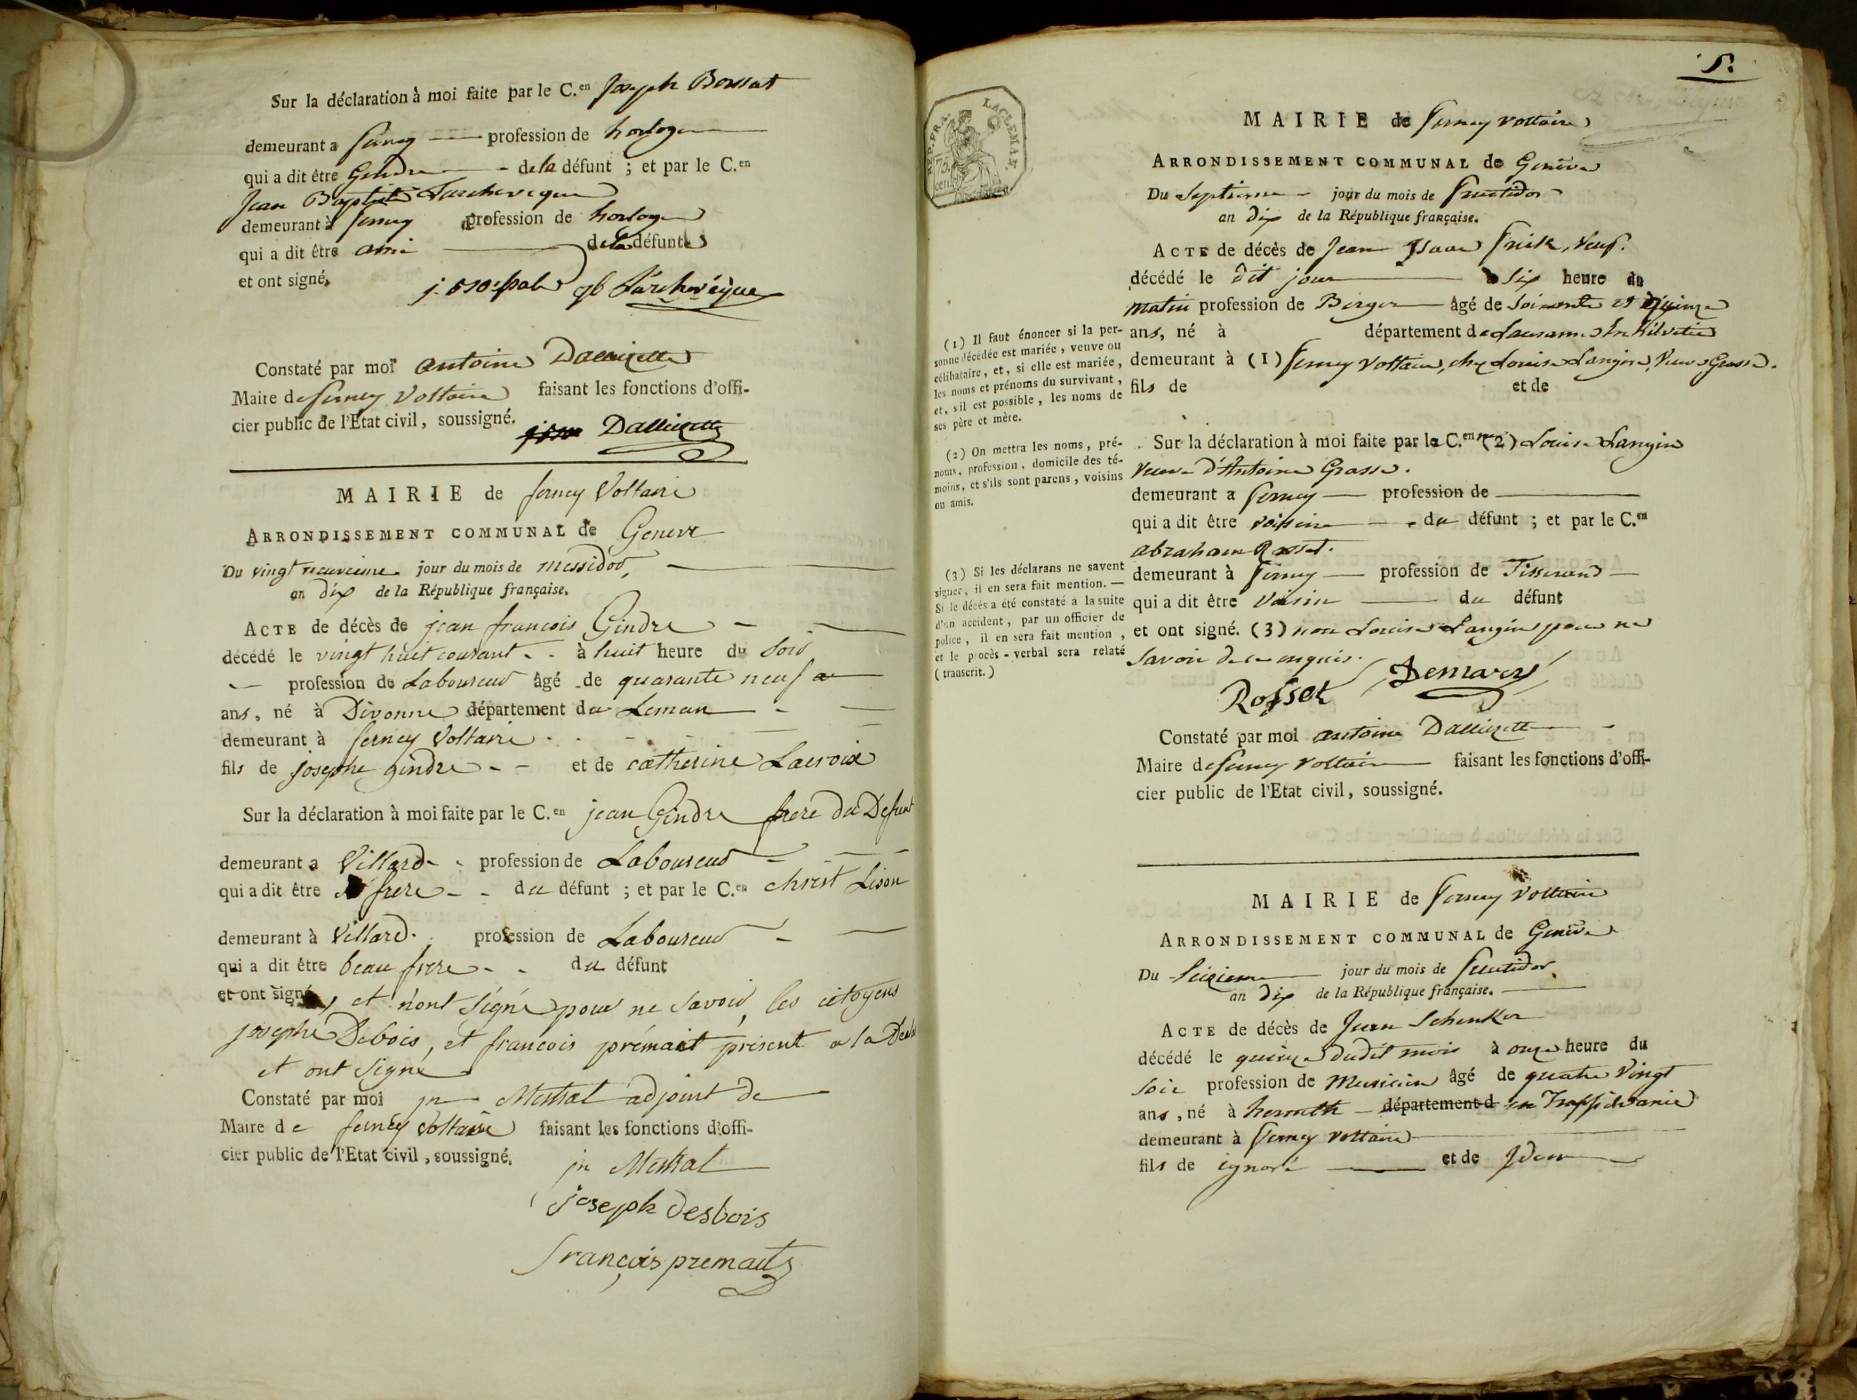 Sur la déclaration à moi faite par le C.en Joseph Bossat
demeurant a ferney profession de horloger
qui a dit être Gendre de la défunt ; et par le C.en
Jean Baptiste Larcheveque
demeurant à ferney profession de horloger
qui a dit être ami de la défunte
et ont signé.
Larchevêque
Constaté par moi antoine Dallizette
Maire de ferney Voltaire faisant les fonctions d'offi-
cier public de l'Etat civil, soussigné.
Dallizette
MAIRIE de ferney Voltaire
ARRONDISSEMENT COMMUNAL de Geneve
Du vingt neuvieme jour du mois de messidor,
an dix de la République française.
ACTE de décès de jean francois Gindre
décédé le vingt huit courant à huit heure du soir
profession de Laboureur âgé de quarante neuf
ans, né à Divonne département du Leman
demeurant à ferney Voltaire
fils de josephe gindre et de catherine Lacroix
Sur la déclaration à moi faite par le C.en jean Gindre frere du Defunt
demeurant a Villard profession de Laboureur
qui a dit être frere du défunt ; et par le C.en christ Lison
demeurant à Villard profession de Laboureur
qui a dit être beau frere du défunt
et ont signé, et n'ont signé pour ne savoir, les citoyens
josephe Debois, et francois prémait présent a la
et ont signé
Constaté par moi jn Mestral adjoint de
Maire de ferney Voltaire faisant les fonctions d'offi-
cier public de l'Etat civil, soussigné.
jn Mestral
joseph desbois
françois premait
5.
REP. FRA.
75
cen.
MAIRIE de ferney voltaire
ARRONDISSEMENT COMMUNAL de Genève
Du Septieme jour du mois de fructidor
an dix de la République française.
ACTE de décès de Jean Isaac , veuf.
décédé le dit jour à six heure du
matin profession de Berger âgé de soixante et quinze
ans, né à département de Lausanne en helvetie
demeurant à (1) ferney voltaire, chez Louise Langin, veuve Grasse.
fils de et de
Sur la déclaration à moi faite par la C.enne (2) Louise Langin
veuve d'Antoine Grasse.
demeurant a ferney profession de
qui a dit être voisine du défunt ; et par le C.en
abraham Rosset.
demeurant à ferney profession de Tisserand
qui a dit être voisin du défunt
et ont signé. (3) non Louise Langin pour ne
savoir de ce enquis.
Rosset Demars
Constaté par moi antoine Dallizette
Maire de ferney voltaire faisant les fonctions d'offi-
cier public de l'Etat civil, soussigné.
(1) Il faut énoncer si la per-
sonne décédée est mariée, veuve ou
célibataire, et, si elle est mariée,
les noms et prénoms du survivant,
et, s'il est possible, les noms de
ses père et mère.
(2) On mettra les noms, pré-
noms, profession, domicile des té-
moins, et s'ils sont parens, voisins
ou amis.
(3) Si les déclarans ne savent
signer, il en sera fait mention. —
Si le décès a été constaté à la suite
d'un accident, par un officier de
police, il en sera fait mention,
et le procès-verbal sera relaté
(transcrit.)
MAIRIE de ferney voltaire
ARRONDISSEMENT COMMUNAL de Genève
Du Seizieme jour du mois de fructidor
an dix de la République française.
ACTE de décès de Jean Schenker
décédé le quinze dudit mois à onze heure du
soir profession de Musicien âgé de quatre vingt
ans, né à département d en
demeurant à ferney voltaire
fils de ignoré et de Idem